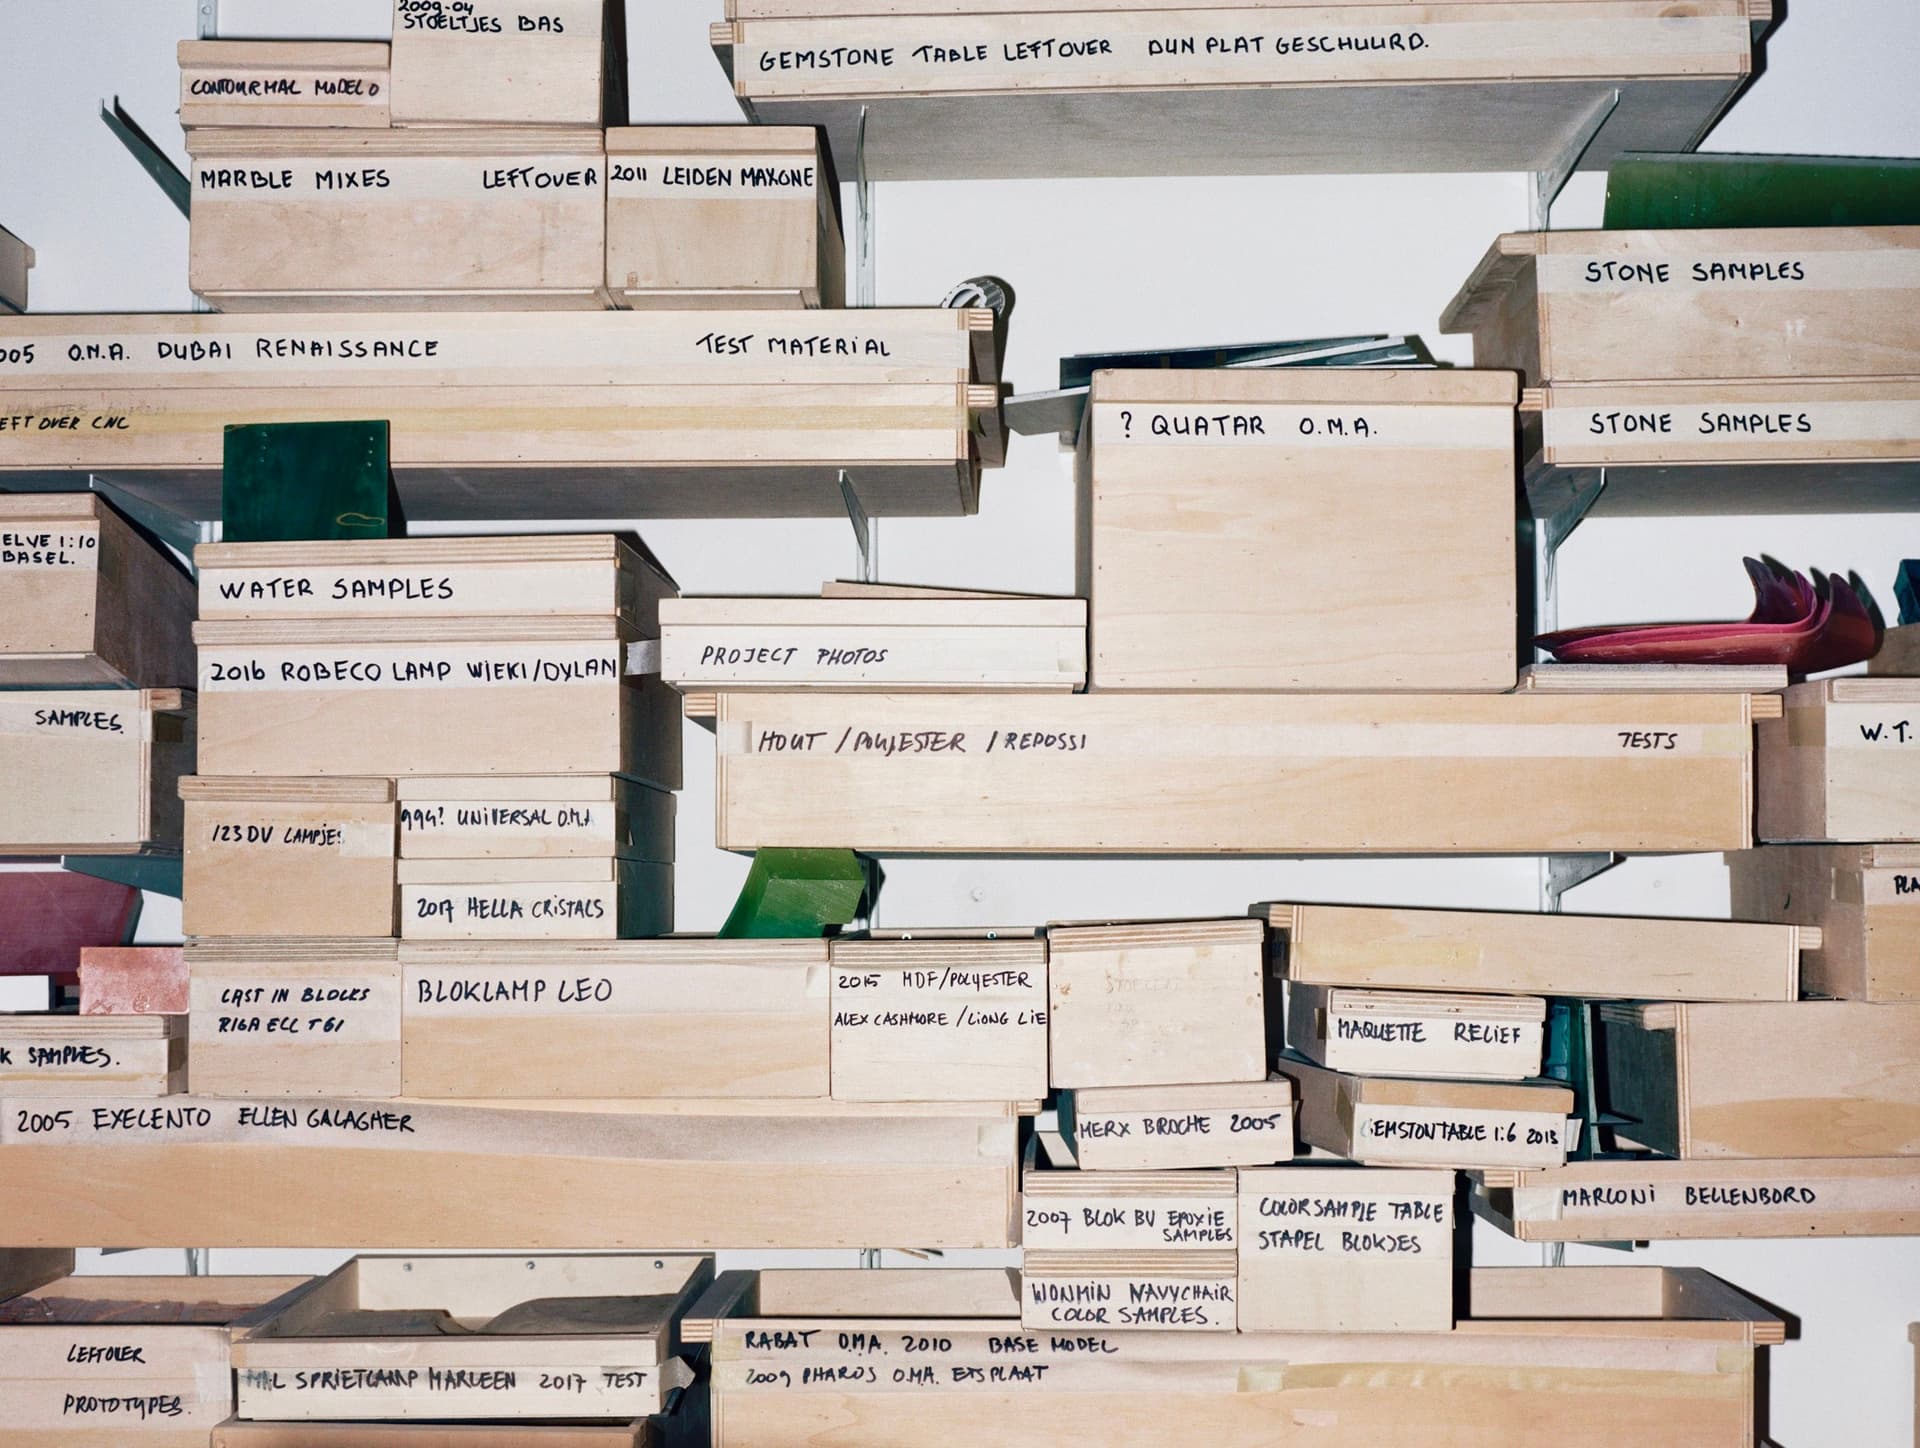 2009-04
STOELTJES BAS
GEMSTONE TABLE LEFTOVER DUN PLAT GESCHUURD.
CONTOURMAL MODEL O
MARBLE MIXES LEFTOVER
2011 LEIDEN MAXONE
STONE SAMPLES
005 O.M.A. DUBAI RENAISSANCE TEST MATERIAL
EFT OVER CNC
? QUATAR O.M.A.
STONE SAMPLES
ELVE 1:10
BASEL.
WATER SAMPLES
PROJECT PHOTOS
2016 ROBECO LAMP WIEKI/DYLAN
SAMPLES.
HOUT / POLYESTER / REPOSSI TESTS
W.T.
123DV LAMPJES
994? UNIVERSAL O.M.A
2017 HELLA CRISTALS
PLA
CAST IN BLOCKS
RIGA ECC T61
BLOKLAMP LEO
2015 MDF/POLYESTER
ALEX CASHMORE / LIONG LIE
MAQUETTE RELIEF
K SAMPLES.
2005 EXELENTO ELLEN GALAGHER
MERX BROCHE 2005
GEMSTONTABLE 1:6 2013
2007 BLOK BV EPOXIE
SAMPLES
COLORSAMPLE TABLE
STAPEL BLOKJES
MARCONI BELLENBORD
WONMIN NAVYCHAIR
COLOR SAMPLES.
LEFTOVER
PROTOTYPES.
MAL SPRIETLAMP MARLEEN 2017 TEST
RABAT O.M.A. 2010 BASE MODEL
2009 PHAROS O.M.A. ETSPLAAT